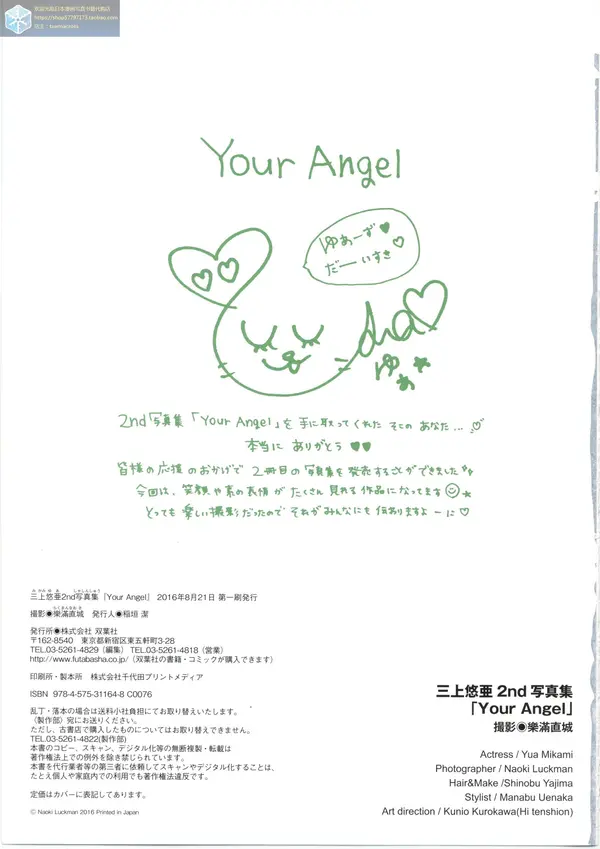 https://shop57797173.taobao.com
Your Angel
ゆあーず♥
だーいすき♡
ゆあ★
2nd写真集「Your Angel」を手に取ってくれた そこのあなた...♡
本当に ありがとう♥♥
皆様の応援のおかげで 2冊目の写真集を発売することができました
今回は、笑顔や素の表情が たくさん 見れる作品になってます☺★
とっても 楽しい撮影だったので それがみんなにも伝ありますよーに♡
み かみ ゆ あ しゃしんしゅう
三上悠亜2nd写真集『Your Angel』 2016年8月21日 第一刷発行
らくまんなおき
撮影◉樂滿直城 発行人●稲垣 潔
発行所●株式会社 双葉社
〒162-8540 東京都新宿区東五軒町3-28
TEL.03-5261-4829（編集） TEL.03-5261-4818（営業）
http://www.futabasha.co.jp/（双葉社の書籍・コミックが購入できます）
印刷所・製本所 株式会社千代田プリントメディア
ISBN 978-4-575-31164-8 C0076
乱丁・落本の場合は送料小社負担にてお取り替えいたします。
（製作部）宛にお送りください。
ただし、古書店で購入したものについてはお取り替えできません。
TEL.03-5261-4822(製作部)
本書のコピー、スキャン、デジタル化等の無断複製・転載は
著作権法上での例外を除き禁じられています。
本書を代行業者等の第三者に依頼してスキャンやデジタル化することは、
たとえ個人や家庭内での利用でも著作権法違反です。
定価はカバーに表記してあります。
© Naoki Luckman 2016 Printed in Japan
三上悠亜 2nd 写真集
「Your Angel」
撮影◉樂滿直城
Actress / Yua Mikami
Photographer / Naoki Luckman
Hair&Make /Shinobu Yajima
Stylist / Manabu Uenaka
Art direction / Kunio Kurokawa(Hi tenshion)